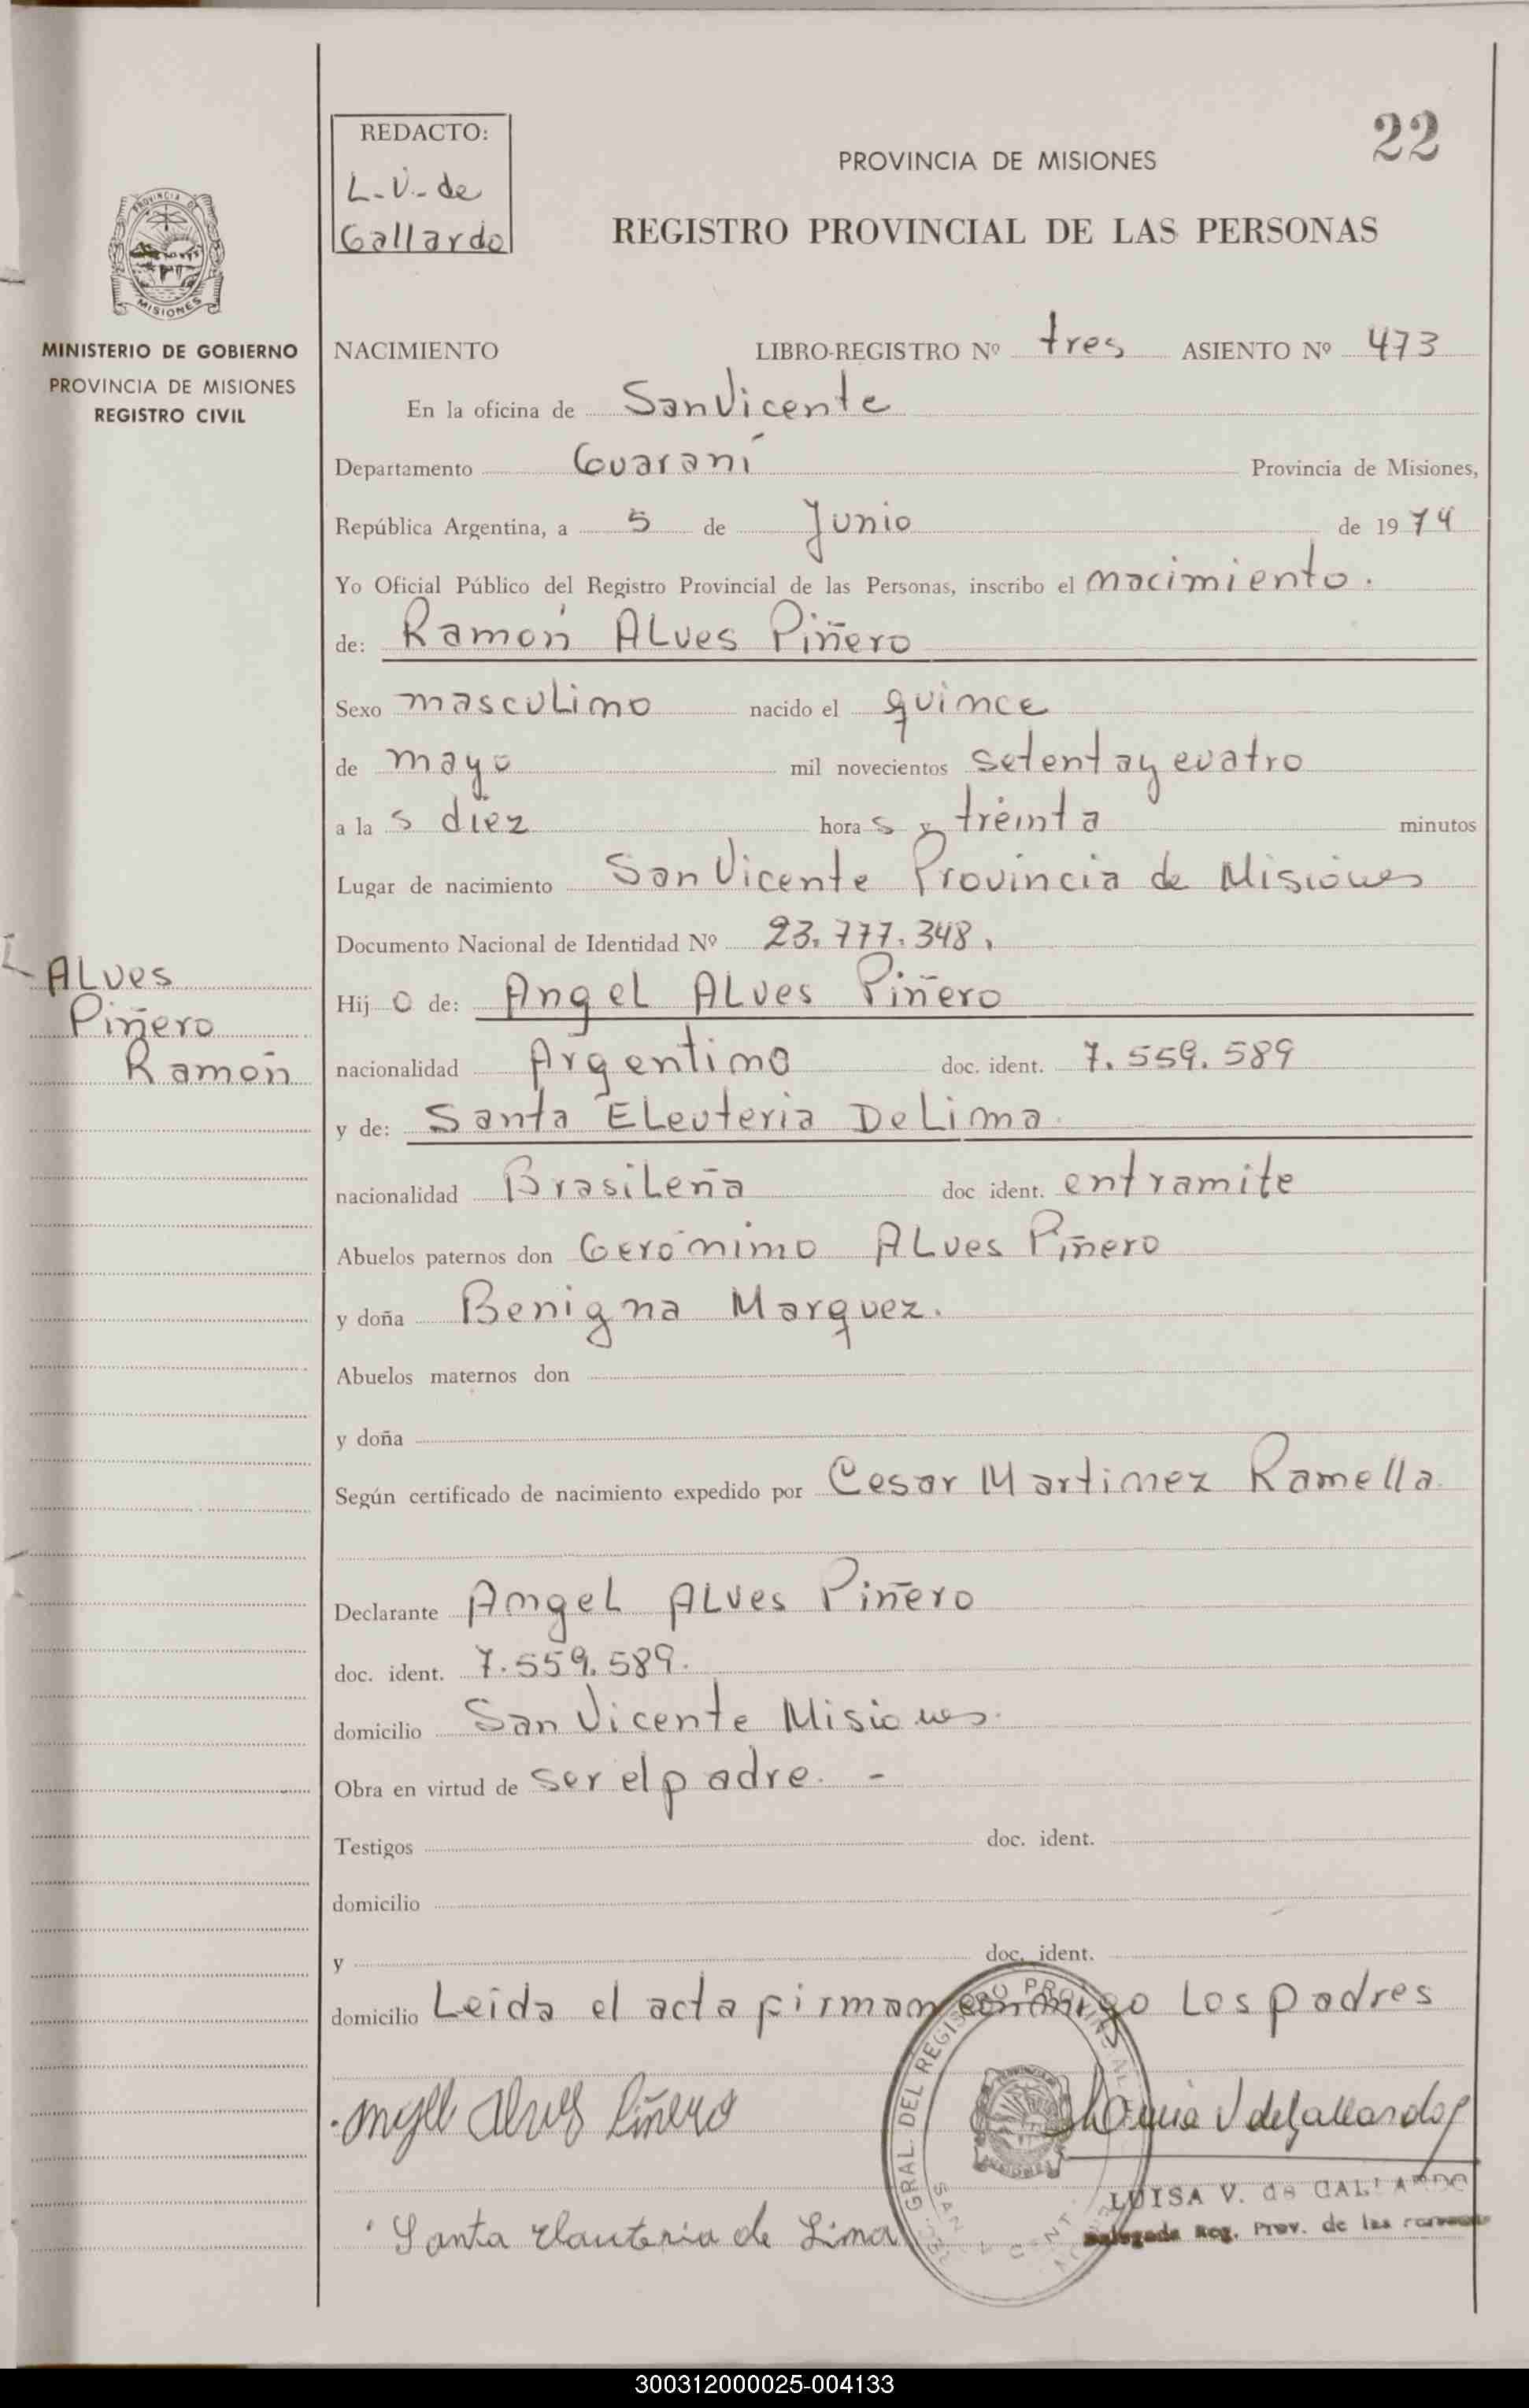 22
REDACTO:
L-V-de
Gallardo
PROVINCIA DE MISIONES
REGISTRO PROVINCIAL DE LAS PERSONAS
PROVINCIA DE
MISIONES
MINISTERIO DE GOBIERNO
PROVINCIA DE MISIONES
REGISTRO CIVIL
NACIMIENTO LIBRO-REGISTRO Nº tres ASIENTO Nº 473
En la oficina de San Vicente
Departamento Guaraní Provincia de Misiones,
República Argentina, a 5 de Junio de 1974
Yo Oficial Público del Registro Provincial de las Personas, inscribo el nacimiento.
de: Ramón ALves Piñero
Sexo mascuLino nacido el quince
de mayo mil novecientos setenta y cuatro
a la s diez hora s y treinta minutos
Lugar de nacimiento San Vicente Provincia de Misiones
Documento Nacional de Identidad Nº 23.777.348.
ALves
Piñero
Ramón
Hij o de: AngeL ALves Piñero
nacionalidad Argentino doc. ident. 7.559.589
y de: Santa ELeuteria De Lima
nacionalidad BrasiLeña doc ident. en tramite
Abuelos paternos don Gerónimo ALves Piñero
y doña Benigna Marquez.
Abuelos maternos don
y doña
Según certificado de nacimiento expedido por Cesar Martinez Ramella.
Declarante AngeL ALves Piñero
doc. ident. 7.559.589.
domicilio San Vicente Misiones.
Obra en virtud de ser el padre. -
Testigos doc. ident.
domicilio
y doc. ident.
domicilio Leida el acta firman conmigo Los padres
Angel Alves Piñero
GRAL. DEL REGISTRO
Luisa V de Gallardo
LUISA V. de GALLARDO
Delegada Reg. Prov. de las Personas
Santa Elauteria de Lima
300312000025-004133